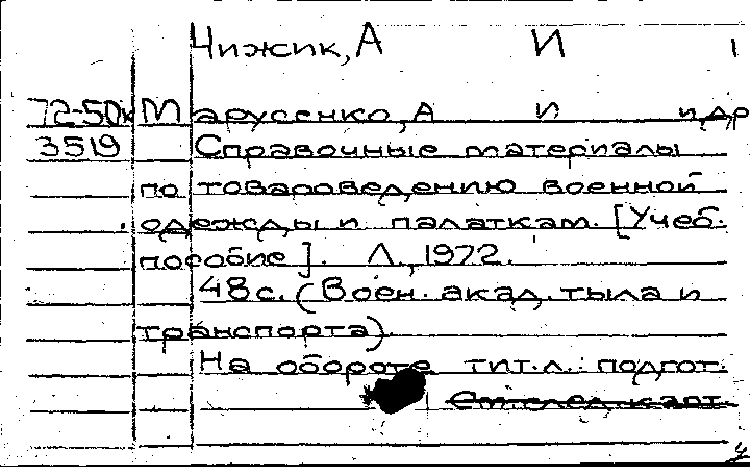 Чижик, А И
72-50к Марусенко, А И и др
3519 Справочные материалы
по товароведению военной
одежды и палаткам. [Учеб.
пособие]. Л., 1972.
48 с. (Воен. акад. тыла и
транспорта).
На обороте тит. л.: подгот.